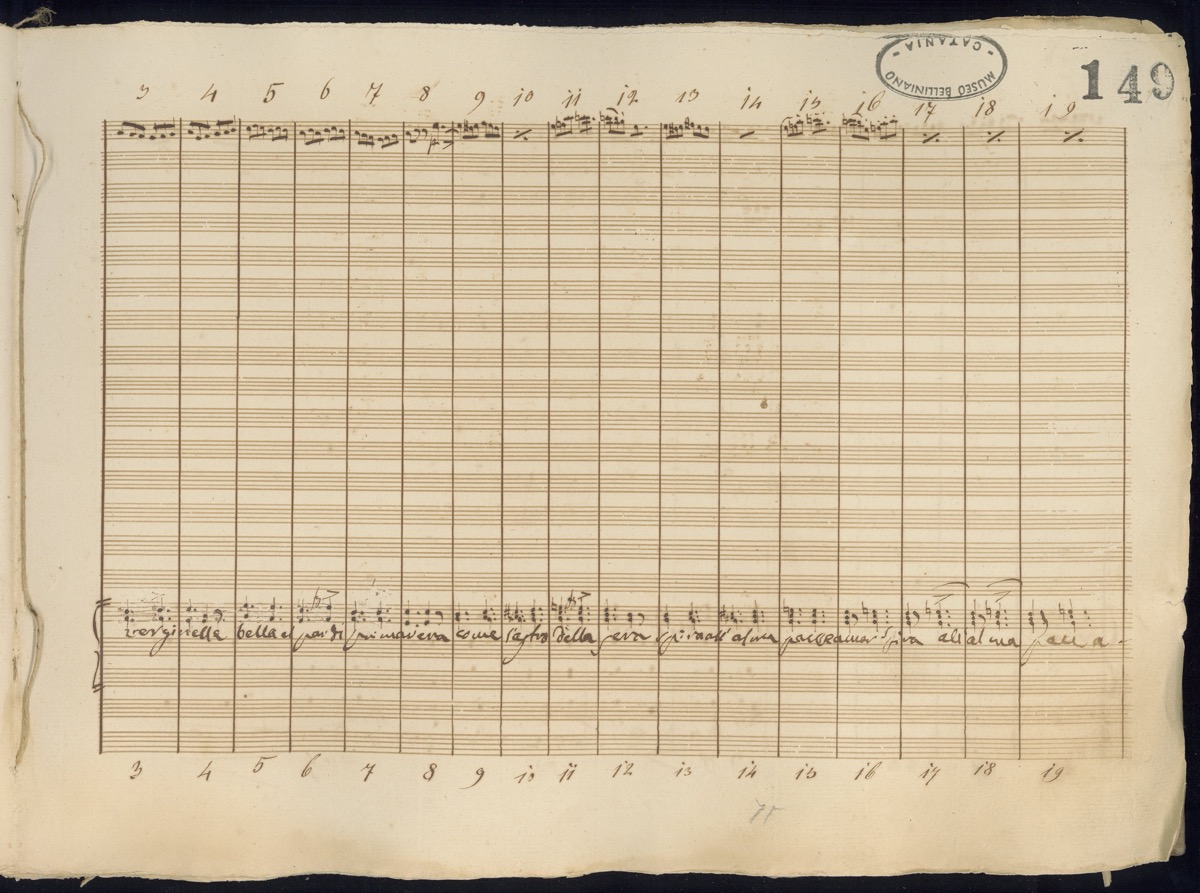 MUSEO BELLINIANO
- CATANIA -
149
3 4 5 6 7 8 9 10 11 12 13 14 15 16 17 18 19
verginella bella al par di primavera come l'astro della sera spira all' alma pace e amor spira all al ma pace a-
3 4 5 6 7 8 9 10 11 12 13 14 15 16 17 18 19
75